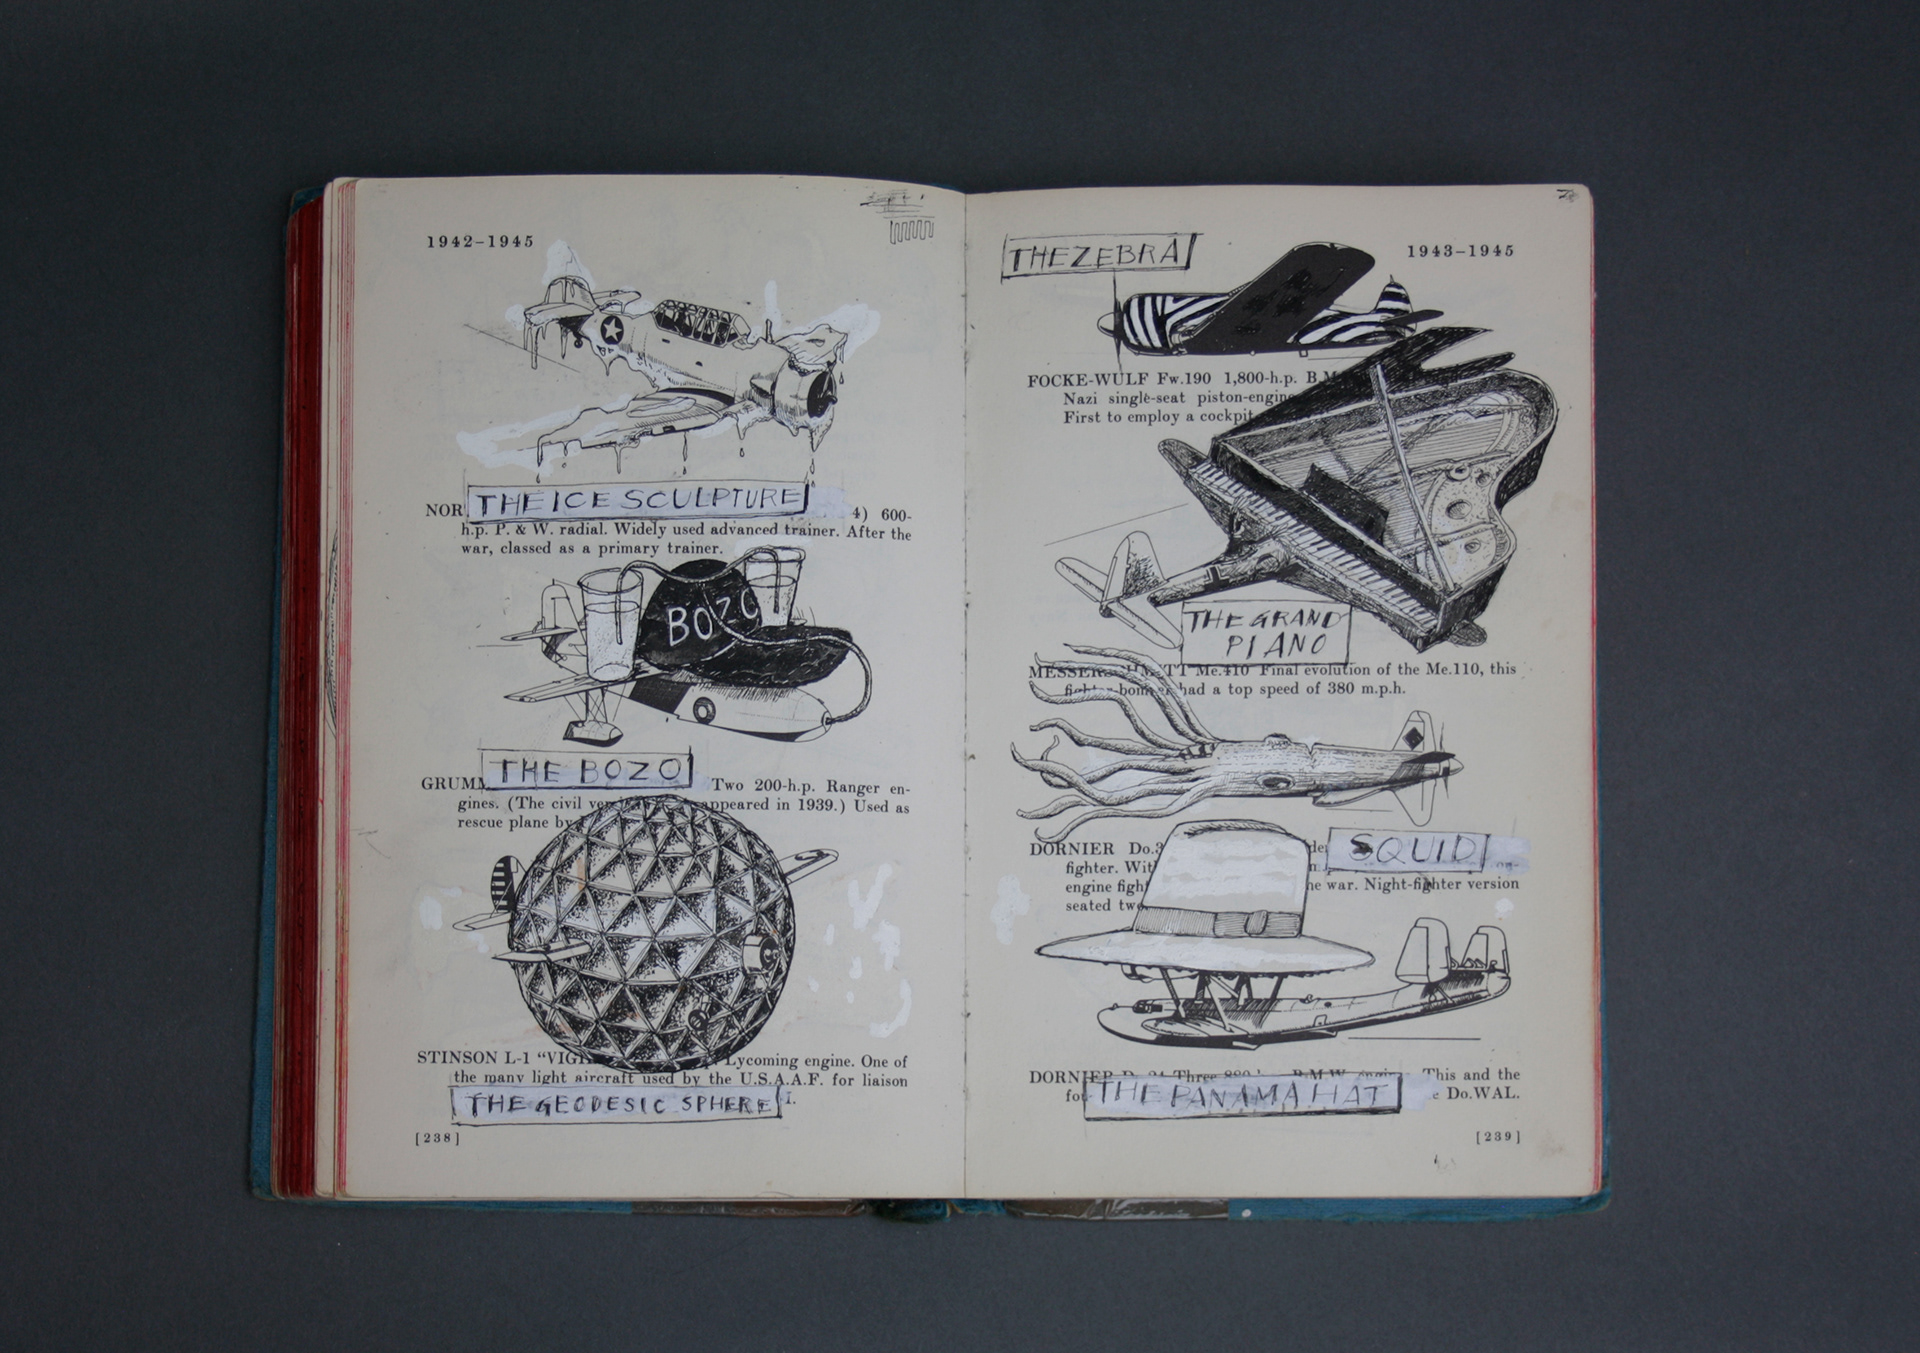 1942–1945
THE ICE SCULPTURE
NOR 4) 600-
h.p. P. & W. radial. Widely used advanced trainer. After the
war, classed as a primary trainer.
BOZO
THE BOZO
GRUMM Two 200-h.p. Ranger en-
gines. (The civil appeared in 1939.) Used as
rescue plane by
STINSON L-1 “VIGI Lycoming engine. One of
the many light aircraft used by the U.S.A.A.F. for liaison
THE GEODESIC SPHERE I.
[238]
THE ZEBRA
1943–1945
FOCKE-WULF Fw.190 1,800-h.p. B.M
Nazi single-seat piston-engine
First to employ a cockpit
THE GRAND
PIANO
MESSERSCHMITT Me.410 Final evolution of the Me.110, this
fighter-bomber had a top speed of 380 m.p.h.
SQUID
DORNIER Do.3
fighter. Wit on-
engine figh he war. Night-fighter version
seated two
DORNIER Do.24 Three 880-h.p. B.M.W. engines. This and the
fo THE PANAMA HAT e Do.WAL.
[239]